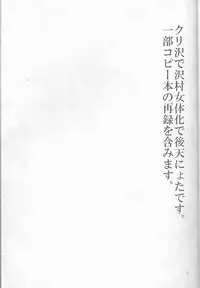 クリ沢で沢村女体化で後天にょたです。
一部コピー本の再録を含みます。